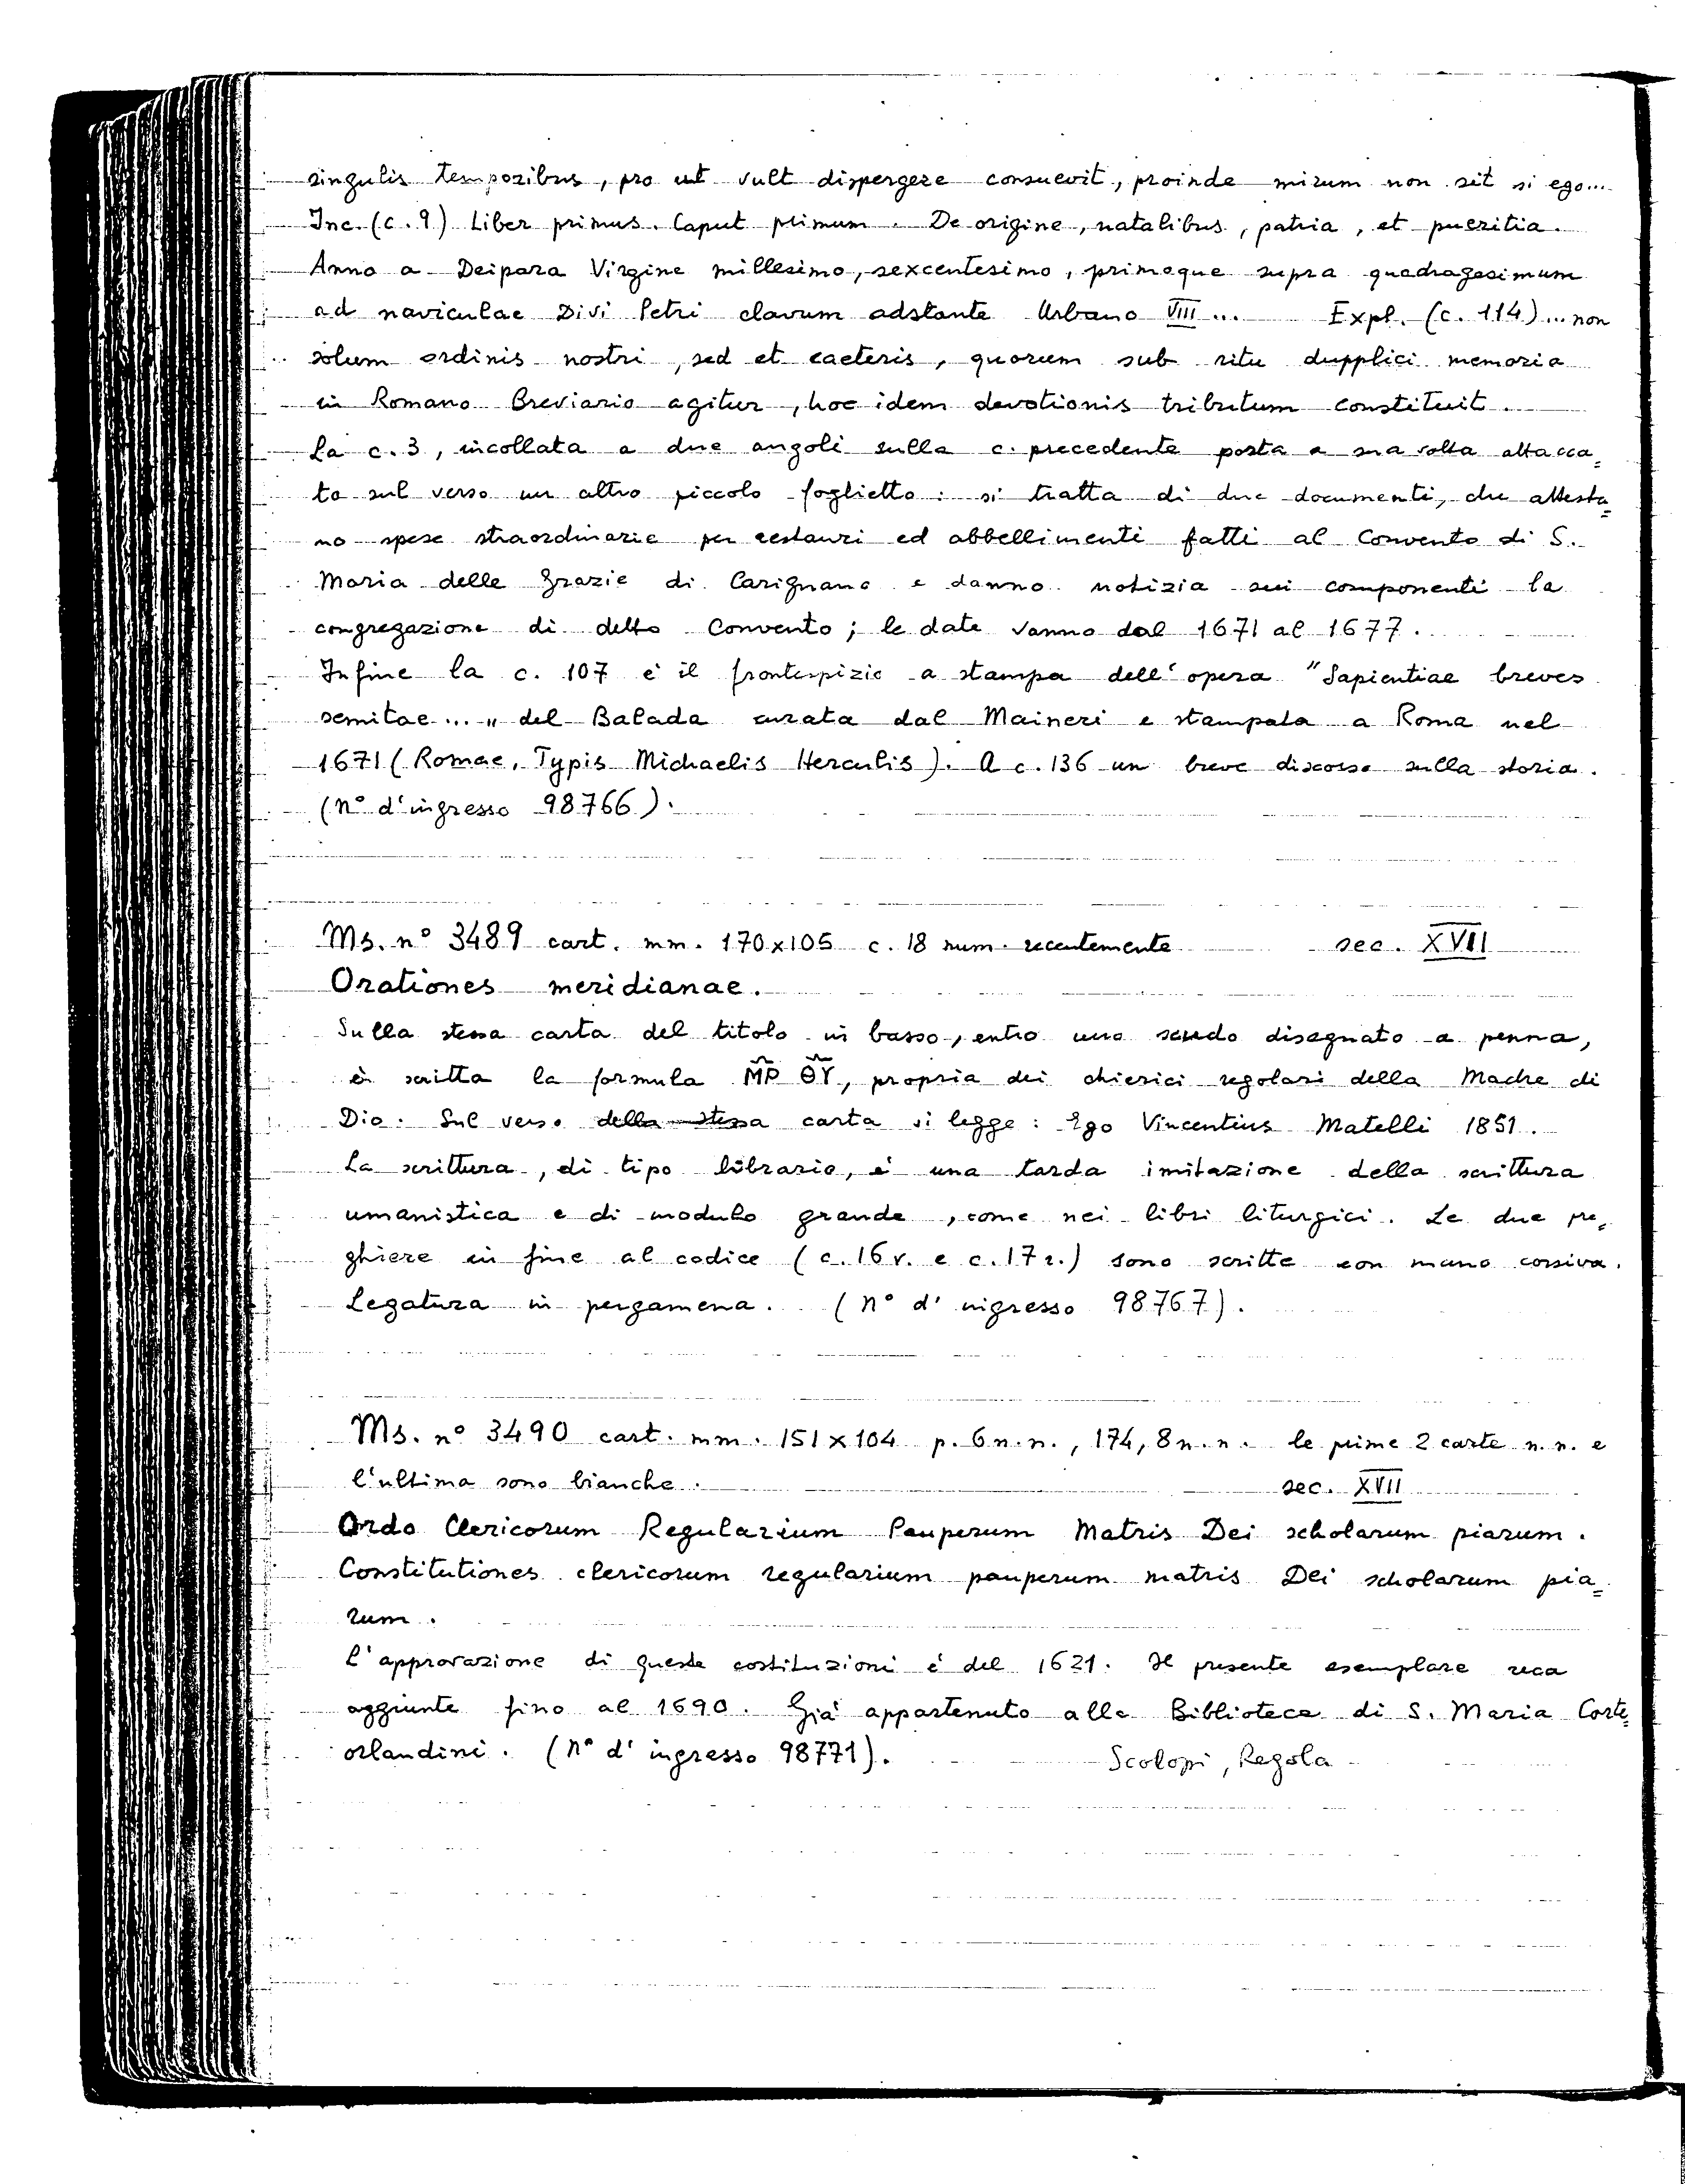 singulis temporibus, pro ut vult dispergere consuevit, proinde mirum non sit si ego...
Inc. (c. 9) Liber primus. Caput primum. De origine, natalibus, patria, et pueritia.
Anno a Deipara Virgine millesimo, sexcentesimo, primoque supra quadragesimum
ad naviculae Divi Petri clavum adstante Urbano VIII... Expl. (c. 114)... non
solum ordinis nostri, sed et caeteris, quorum sub ritu dupplici memoria
in Romano Breviario agitur, hoc idem devotionis tributum constituit.
La c. 3, incollata a due angoli sulla c. precedente porta a sua volta attacca=
to sul verso un altro piccolo foglietto: si tratta di due documenti, che attesta=
no spese straordinarie per restauri ed abbellimenti fatti al Convento di S.
Maria delle Grazie di Carignano e danno notizia sui componenti la
congregazione di detto Convento; le date vanno dal 1671 al 1677.
Infine la c. 107 è il frontespizio a stampa dell'opera "Sapientiae breves
semitae..." del Balada curata dal Maineri e stampata a Roma nel
1671 (Romae, Typis Michaelis Herculis). A c. 136 un breve discorso sulla storia.
(N° d'ingresso 98766).
Ms. n° 3489 cart. mm. 170x105 c. 18 num. recentemente sec. XVII
Orationes meridianae.
Sulla stessa carta del titolo in basso, entro uno scudo disegnato a penna,
è scritta la formula MP ΘΥ, propria dei chierici regolari della Madre di
Dio. Sul verso della stessa carta si legge: Ego Vincentius Matelli 1851.
La scrittura, di tipo librario, è una tarda imitazione della scrittura
umanistica e di modulo grande, come nei libri liturgici. Le due pre=
ghiere in fine al codice (c. 16 v. e c. 17 r.) sono scritte con mano corsiva.
Legatura in pergamena. (N° d'ingresso 98767).
Ms. n° 3490 cart. mm. 151x104 p. 6 n.n., 174, 8 n.n. le prime 2 carte n.n. e
l'ultima sono bianche. sec. XVII
Ordo Clericorum Regularium Pauperum Matris Dei scholarum piarum.
Constitutiones clericorum regularium pauperum matris Dei scholarum pia=
rum.
L'approvazione di queste costituzioni è del 1621. Il presente esemplare reca
aggiunte fino al 1690. Già appartenuto alla Biblioteca di S. Maria Corte=
orlandini. (N° d'ingresso 98771). Scolopi, Regola